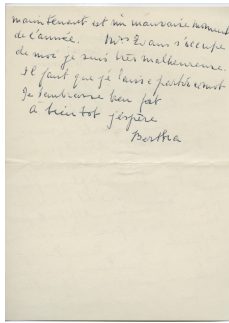 maintenant est un mauvais moment
de l'année. Mrs Evans s'occupe
de moi je suis très malheureuse.
Il faut que je
Je t'embrasse bien fort
A bientôt j'espère
Bertha